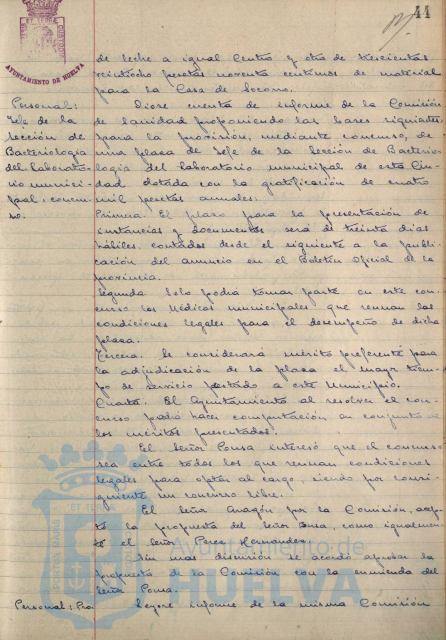 44
AYUNTAMIENTO DE HUELVA
de leche a igual Centro y otra de trescientas
veintiocho pesetas noventa centimos de material
para la Casa de Socorro.
Personal:
Jefe de la
Sección de
Bacteriología
del laborato-
rio munici-
pal: concur-
so.
Diose cuenta de informe de la Comisión
de Sanidad proponiendo las bases siguientes
para la provisión, mediante concurso, de
una plaza de Jefe de la Sección de Bacterio-
logía del laboratorio municipal de esta Ciu-
dad dotada con la gratificación de cuatro
mil pesetas anuales:
Primera. El plazo para la presentación de
instancias y documentos será de treinta dias
hábiles, contados desde el siguiente a la publi-
cación del anuncio en el Boletín Oficial de la
provincia.
Segunda. Solo podrá tomar parte en este con-
curso los Médicos municipales que reunan las
condiciones legales para el desempeño de dicha
plaza.
Tercera. Se considerará mérito preferente para
la adjudicación de la plaza el mayor tiem-
po de servicio prestado a este Municipio.
Cuarta. El Ayuntamiento al resolver el con-
curso podrá hacer computación en conjunto de
los méritos presentados.
El Señor Ponsa interesó que el concurso
sea entre todos los que reunan condiciones
legales para optar al cargo, siendo por consi-
guiente un concurso libre.
El Señor Aragón por la Comisión, acep-
tó la propuesta del Señor Ponsa, como igualmen-
te el Señor Perez Hernandez.
Sin mas discusión se acordó aprobar la
propuesta de la Comisión con la enmienda del
Señor Ponsa.
Personal: Pro-
Leyose informe de la misma Comisión
Ayuntamiento de
HUELVA